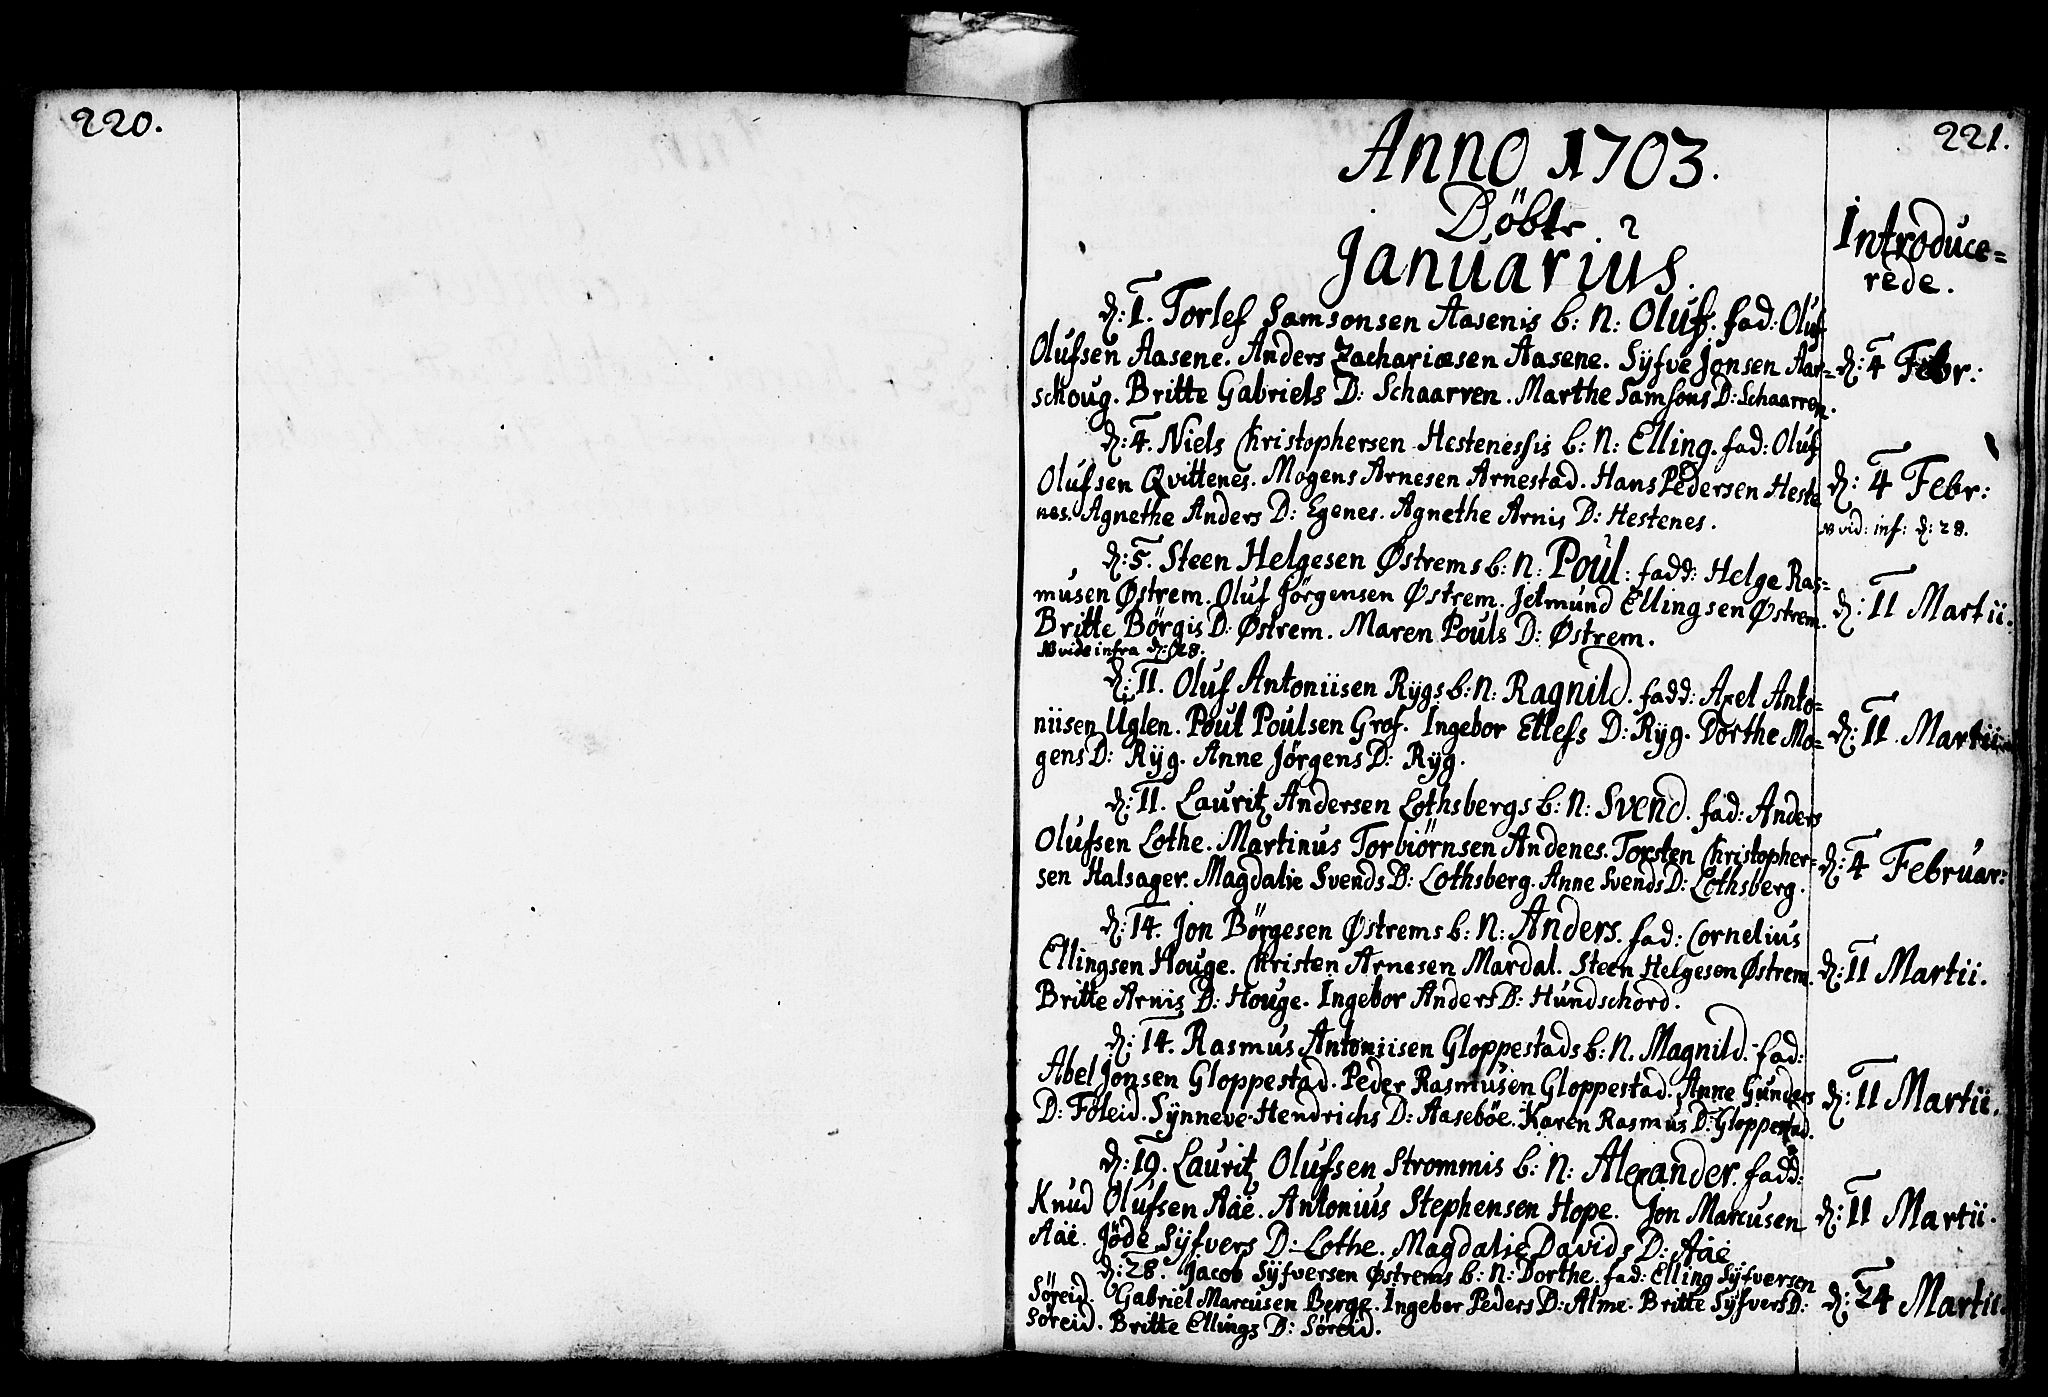 220.
221.
Anno 1703.
Döbte
Januarius.
Introduce=
rede.
d: 1. Torlef Samsonsen Aasenis b: N: Oluf. fad: Oluf
Olufsen Aasene. Anders Zachariæsen Aasene. Syfve Jonsen Aar=
schoug. Britte Gabriels D: Schaarren. Marthe Samsons D: Schaarren.
d: 4 Febr:
d: 4. Niels Christophersen Hestenessis b: N: Elling. fad: Oluf
Olufsen Qvittenes. Mogens Arnesen Arnestad. Hans Pedersen Heste
nes. Agnethe Anders D: Egenes. Agnethe Arnis D: Hestenes.
d: 4 Febr:
NB vid: inf: d: 28.
d: 5. Steen Helgesen Østrems b: N: Poul. fadd: Helge Ras=
musen Østrem. Oluf Jörgensen Østrem. Jetmund Ellingsen Østrem.
Britte Börgis D: Østrem. Maren Pouls D: Østrem.
NB vide infra d: 28.
d: 11 Martii.
d: 11. Oluf Antoniisen Rygs b: N: Ragnild. fadd: Axel Anto=
niisen Uglen. Poul Poulsen Grof. Ingebor Ellefs D: Ryg. Dorthe Mo=
gens D: Ryg. Anne Jörgens D: Ryg.
d: 11. Martii
d: 11. Lauritz Andersen Lothsbergs b: N: Svend. fad: Anders
Olufsen Lothe. Martinus Torbiörnsen Andenes. Torsten Christopher=
sen Halsager. Magdalie Svends D: Lothsberg. Anne Svends D: Lothsberg.
d: 4 Februar:
d: 14. Jon Börgesen Østrems b: N: Anders. fad: Cornelius
Ellingsen Houge. Christen Arnesen Mardal. Steen Helgesen Østrem.
Britte Arnis D: Houge. Ingebor Anders D: Hundschord.
d: 11 Martii.
d: 14. Rasmus Antoniisen Gloppestads b: N. Magnild. fad:
Abel Jonsen Gloppestad. Peder Rasmusen Gloppestad. Anne Gunders
D: Föleid. Synneve Hendrichs D: Aaseböe. Karen Rasmus D: Gloppestad.
d: 11 Martii.
d: 19. Lauritz Olufsen Strommis b: N: Alexander. fadd:
Knud Olufsen Aae. Antonius Stephensen Hope. Jon Marcusen
Aae. Jöde Syfvers D: Lothe. Magdalie Davids D: Aae
d: 11 Martii.
d: 28. Jacob Syfversen Østrems b: N: Dorthe. fad: Elling Syfversen
Söreid. Gabriel Marcusen Berge. Ingebor Peders D: Alme. Britte Syfvers D:
Söreid. Britte Ellings D: Söreid.
d: 24 Martii.